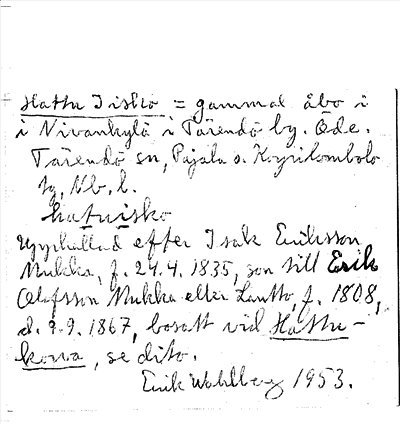 Hattu Iisko = gammal åbo i
i Nivankylä i Tärendö by. Öde.
Tärendö sn, Pajala o. Korpilombolo
tg, Nb. l.
hatuisko
Uppkallad efter Isak Eriksson
Mukka, f. 24.4. 1835, son till Erik
Olofsson Mukka eller Lantto f. 1808,
d. 9.9. 1867, bosatt vid Hattu-
korva, se dito.
Erik Wahlberg 1953.